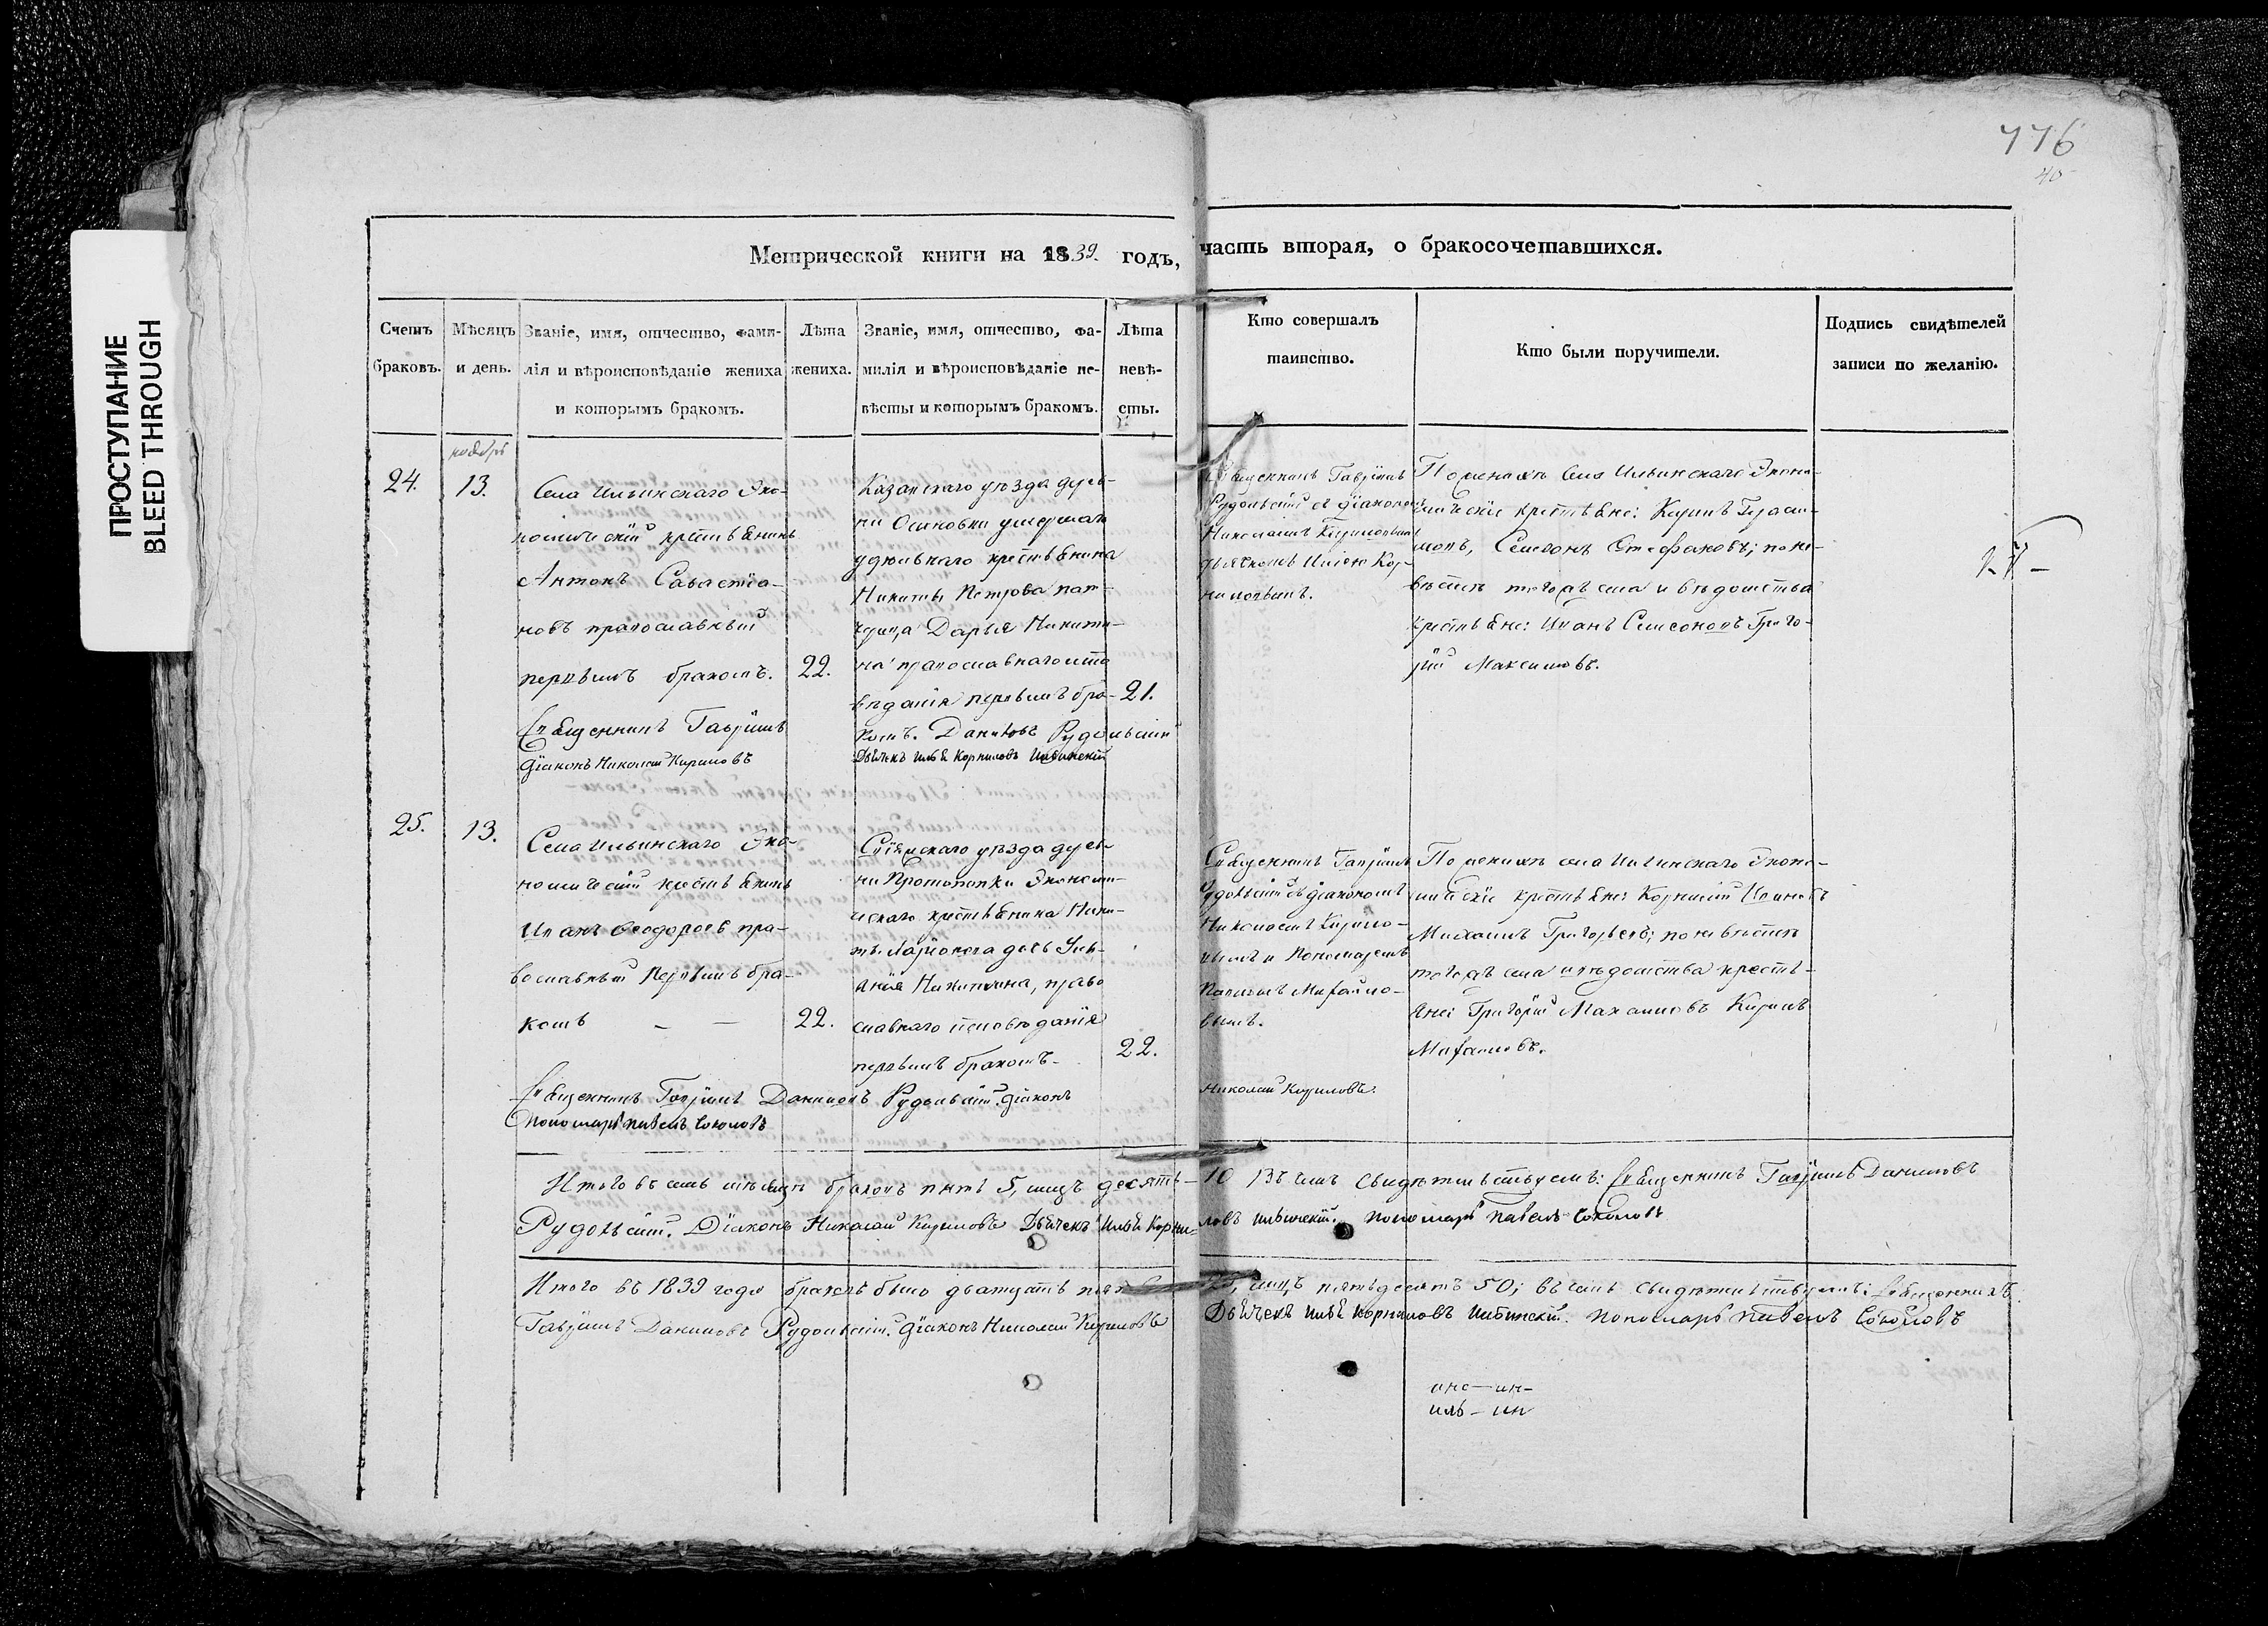 ПРОСТУПАНИЕ
BLEED THROUGH
776
40
Метрической книги на 1839. годъ, часть вторая, о бракосочетавшихся.
Счетъ
браковъ.
Мѣсяцъ
и день.
Званіе, имя, отчество, фами-
лія и вѣроисповѣданіе жениха
и которымъ бракомъ.
Лѣта
жениха.
Званіе, имя, отчество, фа-
милія и вѣроисповѣданіе не-
вѣсты и которымъ бракомъ.
Лѣта
невѣ-
сты.
Кто совершалъ
таинство.
Кто были поручители.
Подпись свидѣтелей
записи по желанію.
ноябрь
24.
13.
Села Ильинскаго Эко-
номическій крестьянинъ
Антонъ Савастіа-
новъ православный
первымъ бракомъ.
22.
Казанскаго уѣзда дерев-
ни Осиновки умершаго
удѣльнаго крестьянина
Никиты Петрова пат-
чурица Дарья Никити-
на православнаго испо-
вѣданія первымъ бра-
комъ.
21.
Священникъ Гавріилъ Даниловъ Рудольскій
Діаконъ Николай Кириловъ Дьячекъ Илья Корниловъ Ильинскій
Священникъ Гавріилъ
Рудольскій съ діакономъ
Николаемъ Кириловымъ
дьячкомъ Ильею Кор-
ниловымъ.
По женихѣ села Ильинскаго Эконо-
мическіе крестьяне: Кирилъ Гераси-
мовъ, Семенъ Стефановъ; по не-
вѣстѣ тогожъ села и вѣдомства
крестьяне: Иванъ Семеновъ Григо-
рій Максимовъ.
25.
13.
Села Ильинскаго Эко-
номическій крестьянинъ
Иванъ Феодоровъ пра-
вославный первымъ бра-
комъ
22.
Свіяжскаго уѣзда дерев-
ни Протопопки Экономи-
ческаго крестьянина Ники-
ты Ларіонова дочь Уль-
яния Никитина, право
славнаго исповѣданія
первымъ бракомъ
22.
Священникъ Гавріилъ Даниловъ Рудольскій. діаконъ Николай Кириловъ.
Пономарь Павелъ Соколовъ
Священникъ Гавріилъ
Рудольскій съ діакономъ
Николаемъ Кирило-
вымъ и Пономаремъ
Павломъ Михайло-
вымъ.
По женихѣ села Ильинскаго Эконо-
мическіе крестьяне: Корнилій Ивановъ
Михаилъ Григорьевъ; по невѣстѣ
тогожъ села и вѣдомства кресть-
яне: Григорій Максимовъ Кирилъ
Михайловъ.
Итого въ семъ мѣсяцѣ браковъ пять 5, лицъ десять 10 Въ чемъ свидѣтельствуемъ: Священникъ Гавріилъ Даниловъ
Рудольскій. Діаконъ Николай Кириловъ Дьячекъ Илья Корни-ловъ Ильинскій. Пономарь Павелъ Соколовъ
Итого въ 1839 году браковъ было двадцать пять 25, лицъ пятьдесятъ 50; въ чемъ свидѣтельствуемъ: Священникъ
Гавріилъ Даниловъ Рудольскій. Діаконъ Николай Кириловъ Дьячекъ Илья Корниловъ Ильинскій. Пономарь Павелъ Соколовъ